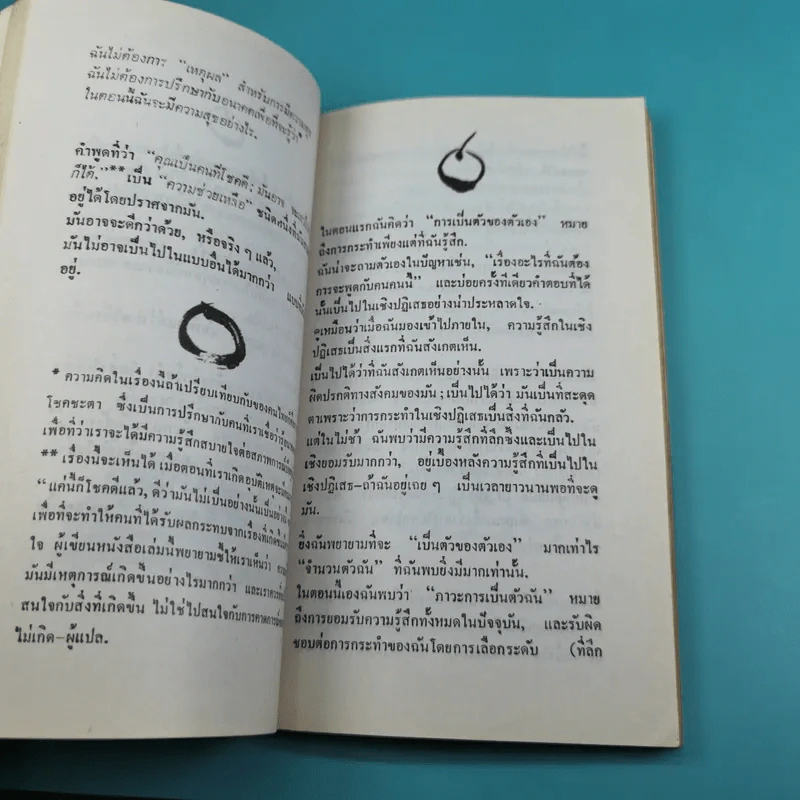 ฉันไม่ต้องการ “เหตุผล” สำหรับการมีความสุข
ฉันไม่ต้องการปรึกษากับอนาคตเพื่อที่จะรู้ว่า
ในตอนนี้ฉันจะมีความสุขอย่างไร.
คำพูดที่ว่า “คุณเป็นคนที่โชคดี; มันอาจ
ก็ได้.”** เป็น “ความช่วยเหลือ” ชนิดหนึ่งที่
อยู่ได้โดยปราศจากมัน.
มันอาจจะดีกว่าด้วย, หรือจริง ๆ แล้ว,
มันไม่อาจเป็นไปในแบบอื่นได้มากกว่า
อยู่.
* ความคิดในเรื่องนี้ถ้าเปรียบเทียบกับของคนไทย
โชคชะตา ซึ่งเป็นการปรึกษากับคนที่เราเชื่อว่า
เพื่อที่ว่าเราจะได้มีความรู้สึกสบายใจต่อสภาพการณ์
** เรื่องนี้จะเห็นได้ เมื่อตอนที่เราเกิดอุบัติเหตุ
“แค่นี้ก็โชคดีแล้ว, ดีว่ามันไม่เป็นอย่างนั้นเป็นอย่าง
เพื่อที่จะทำให้คนที่ได้รับผลกระทบจากเรื่องที่เกิดขึ้น
ใจ ผู้เขียนหนังสือเล่มนี้พยายามชี้ให้เราเห็นว่า
มันมีเหตุการณ์เกิดขึ้นอย่างไรมากกว่า และเราควร
สนใจกับสิ่งที่เกิดขึ้น ไม่ใช่ไปสนใจกับการคาดการณ์
ไม่เกิด–ผู้แปล.
ในตอนแรกฉันคิดว่า “การเป็นตัวของตัวเอง” หมาย
ถึงการกระทำเพียงแต่ที่ฉันรู้สึก.
ฉันน่าจะถามตัวเองในปัญหาเช่น, “เรื่องอะไรที่ฉันต้อง
การจะพูดกับคนคนนี้” และบ่อยครั้งทีเดียวคำตอบที่ได้
นั้นเป็นไปในเชิงปฏิเสธอย่างน่าประหลาดใจ.
ดูเหมือนว่าเมื่อฉันมองเข้าไปภายใน, ความรู้สึกในเชิง
ปฏิเสธเป็นสิ่งแรกที่ฉันสังเกตเห็น.
เป็นไปได้ว่าที่ฉันสังเกตเห็นอย่างนั้น เพราะว่าเป็นความ
ผิดปรกติทางสังคมของมัน; เป็นไปได้ว่า มันเป็นที่สะดุด
ตาเพราะว่าการกระทำในเชิงปฏิเสธเป็นสิ่งที่ฉันกลัว.
แต่ในไม่ช้า ฉันพบว่ามีความรู้สึกที่ลึกซึ้งและเป็นไปใน
เชิงยอมรับมากกว่า, อยู่เบื้องหลังความรู้สึกที่เป็นไปใน
เชิงปฏิเสธ–ถ้าฉันอยู่เฉย ๆ เป็นเวลายาวนานพอที่จะดู
มัน.
ยิ่งฉันพยายามที่จะ “เป็นตัวของตัวเอง” มากเท่าไร
“จำนวนตัวฉัน” ที่ฉันพบยิ่งมีมากเท่านั้น.
ในตอนนี้เองฉันพบว่า “ภาวะการเป็นตัวฉัน” หมาย
ถึงการยอมรับความรู้สึกทั้งหมดในปัจจุบัน, และรับผิด
ชอบต่อการกระทำของฉันโดยการเลือกระดับ (ที่ลึก